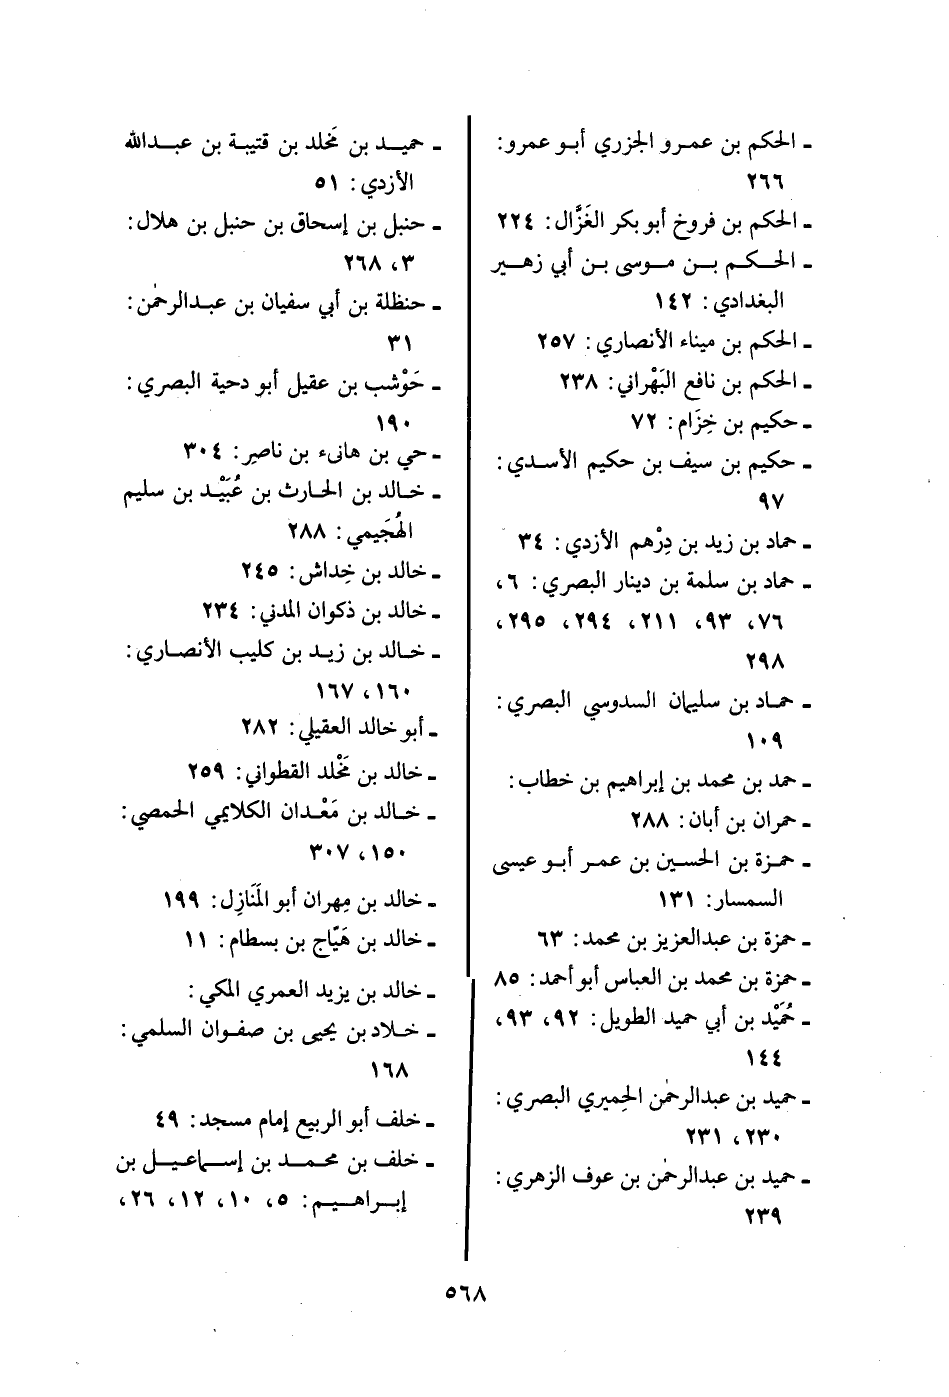 - الحكم بن عمرو الجزري أبو عمرو:
٢٦٦
- الحكم بن فروخ أبو بكر الغَزَّال: ٢٢٤
- الحكم بن موسى بن أبي زهير
البغدادي: ١٤٢
- الحكم بن ميناء الأنصاري: ٢٥٧
- الحكم بن نافع البَهْراني: ٢٣٨
- حكيم بن حِزَام: ٧٢
- حكيم بن سيف بن حكيم الأسدي:
٩٧
- حماد بن زيد بن دِرْهم الأزدي: ٣٤
- حماد بن سلمة بن دينار البصري: ٦،
٧٦، ٩٣، ٢١١، ٢٩٤، ٢٩٥،
٢٩٨
- حماد بن سليمان السدوسي البصري:
١٠٩
- حمد بن محمد بن إبراهيم بن خطاب:
- حمران بن أبان: ٢٨٨
- حمزة بن الحسين بن عمر أبو عيسى
السمسار: ١٣١
- حمزة بن عبدالعزيز بن محمد: ٦٣
- حمزة بن محمد بن العباس أبو أحمد: ٨٥
- حُمَيْد بن أبي حميد الطويل: ٩٢، ٩٣،
١٤٤
- حميد بن عبدالرحمٰن الحِميري البصري:
٢٣٠، ٢٣١
- حميد بن عبدالرحمٰن بن عوف الزهري:
٢٣٩
- حميد بن مَخلد بن قتيبة بن عبدالله
الأزدي: ٥١
- حنبل بن إسحاق بن حنبل بن هلال:
٣، ٢٦٨
- حنظلة بن أبي سفيان بن عبدالرحمٰن:
٣١
- حَوْشب بن عقيل أبو دحية البصري:
١٩٠
- حي بن هانىء بن ناصِر: ٣٠٤
- خالد بن الحارث بن عُبَيْد بن سليم
الهُجَيمي: ٢٨٨
- خالد بن خِداش: ٢٤٥
- خالد بن ذكوان المدني: ٢٣٤
- خالد بن زيد بن كليب الأنصاري:
١٦٠، ١٦٧
- أبو خالد العقيلي: ٢٨٢
- خالد بن مَخْلد القطواني: ٢٥٩
- خالد بن مَعْدان الكلايمي الحمصي:
١٥٠، ٣٠٧
- خالد بن مِهران أبو المَنَازِل: ١٩٩
- خالد بن هَيَّاج بن بسطام: ١١
- خالد بن يزيد العمري المكي:
- خلاد بن يحيى بن صفوان السلمي:
١٦٨
- خلف أبو الربيع إمام مسجد: ٤٩
- خلف بن محمد بن إسماعيل بن
إبراهيم: ٥، ١٠، ١٢، ٢٦،
٥٦٨